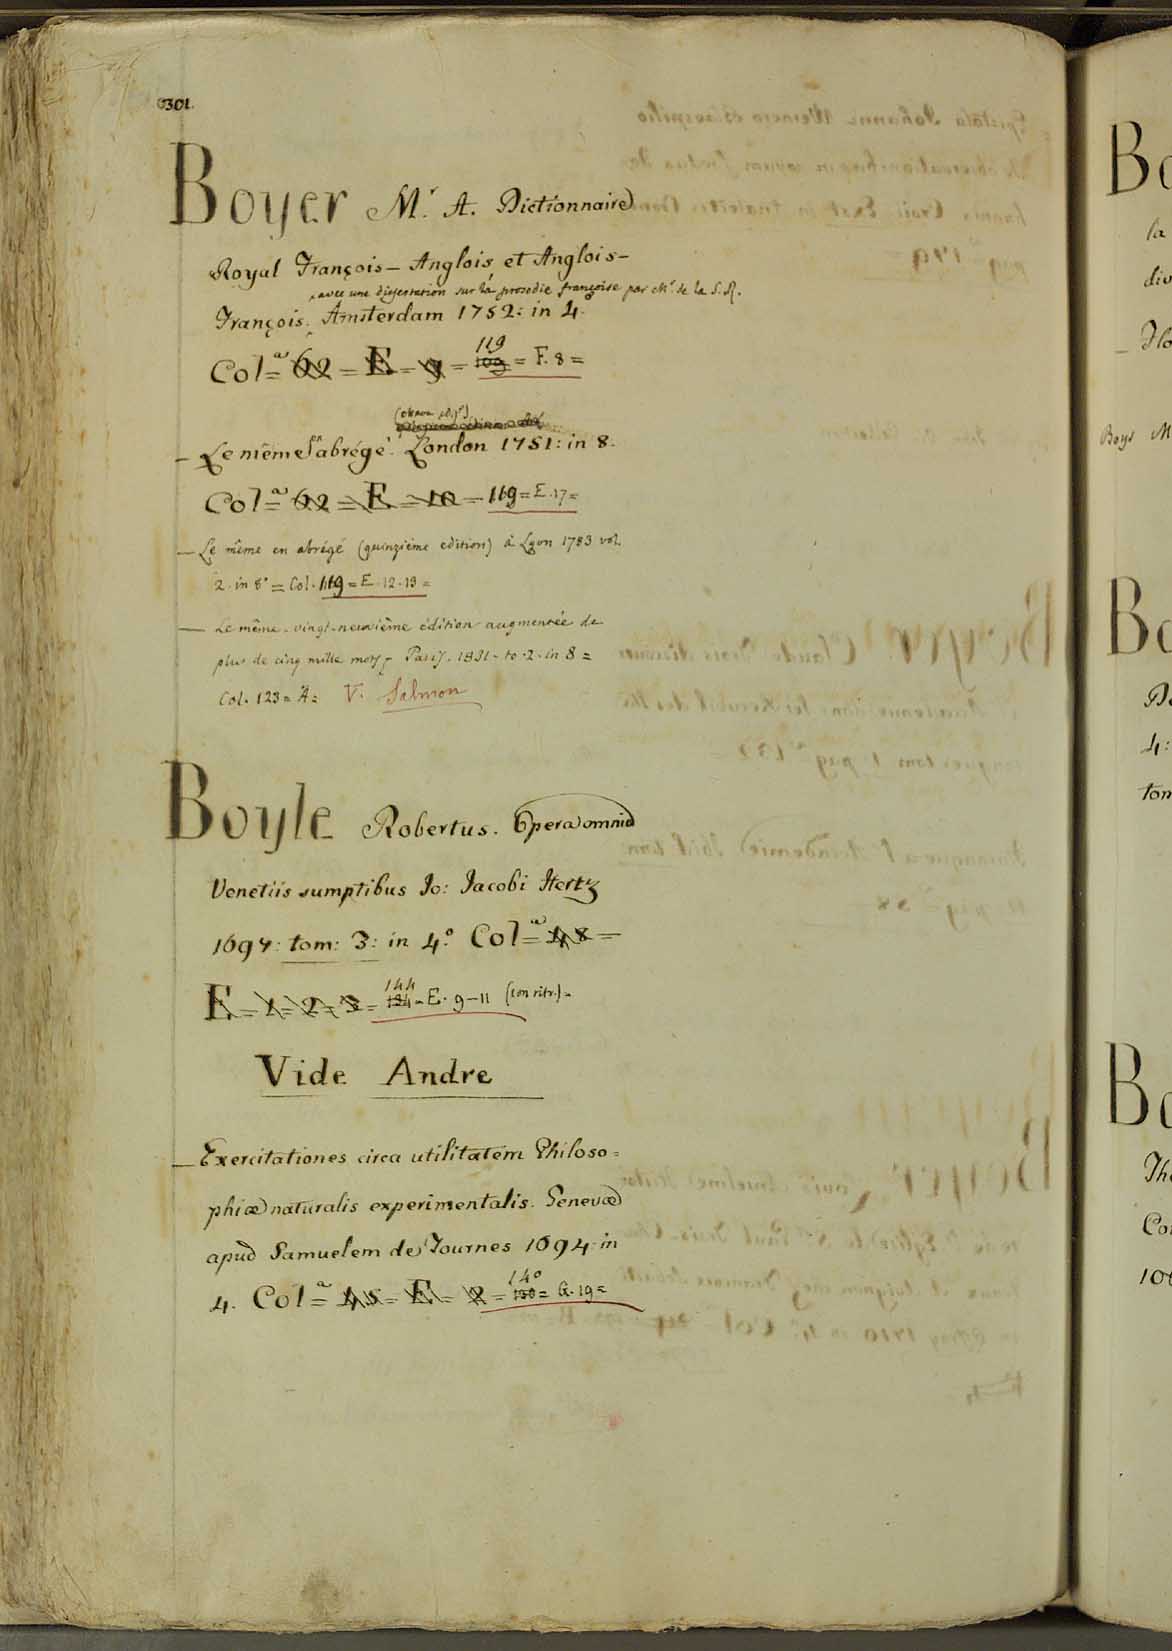 301.
Boyer Mr. A. Dictionnaire
Royal François - Anglois et Anglois -
avec une dissertation sur la prosodie françoise par Mr. de la S. R.
François. Amsterdam 1752: in 4.
Col=a 62 = E = 9 = 109 119 = F. 8 =
— Le même abrégé. London 1751: in 8.
Col=a 62 = E = 10 = 119 = E. 17 =
— Le même en abrégé (quinzième edition) à Lyon 1783 vol.
2. in 8° = Col. 119 = E. 12. 13 =
— Le même. vingt-neuvième édition augmentée de
plus de cinq mille mots. Paris. 1831. to. 2. in 8 =
Col. 123 = A = V. Salmon
Boyle Robertus. Opera omnia
Venetiis sumptibus Jo: Jacobi Hertz
1697: tom: 3: in 4.° Col=a 48 =
E = 1 = 2 = 3 = 134 144 = E. 9 - 11 (con ritr.) =
Vide Andre
— Exercitationes circa utilitatem Philoso=
phiæ naturalis experimentalis. Genevæ
apud Samuelem de Tournes 1694 in
4. Col=a 45 = E = 8 = 130 140 = G. 19 =
Bo
la
div
— Flo
Boys M
Bo
4:
tom
Bo
The
Col
100